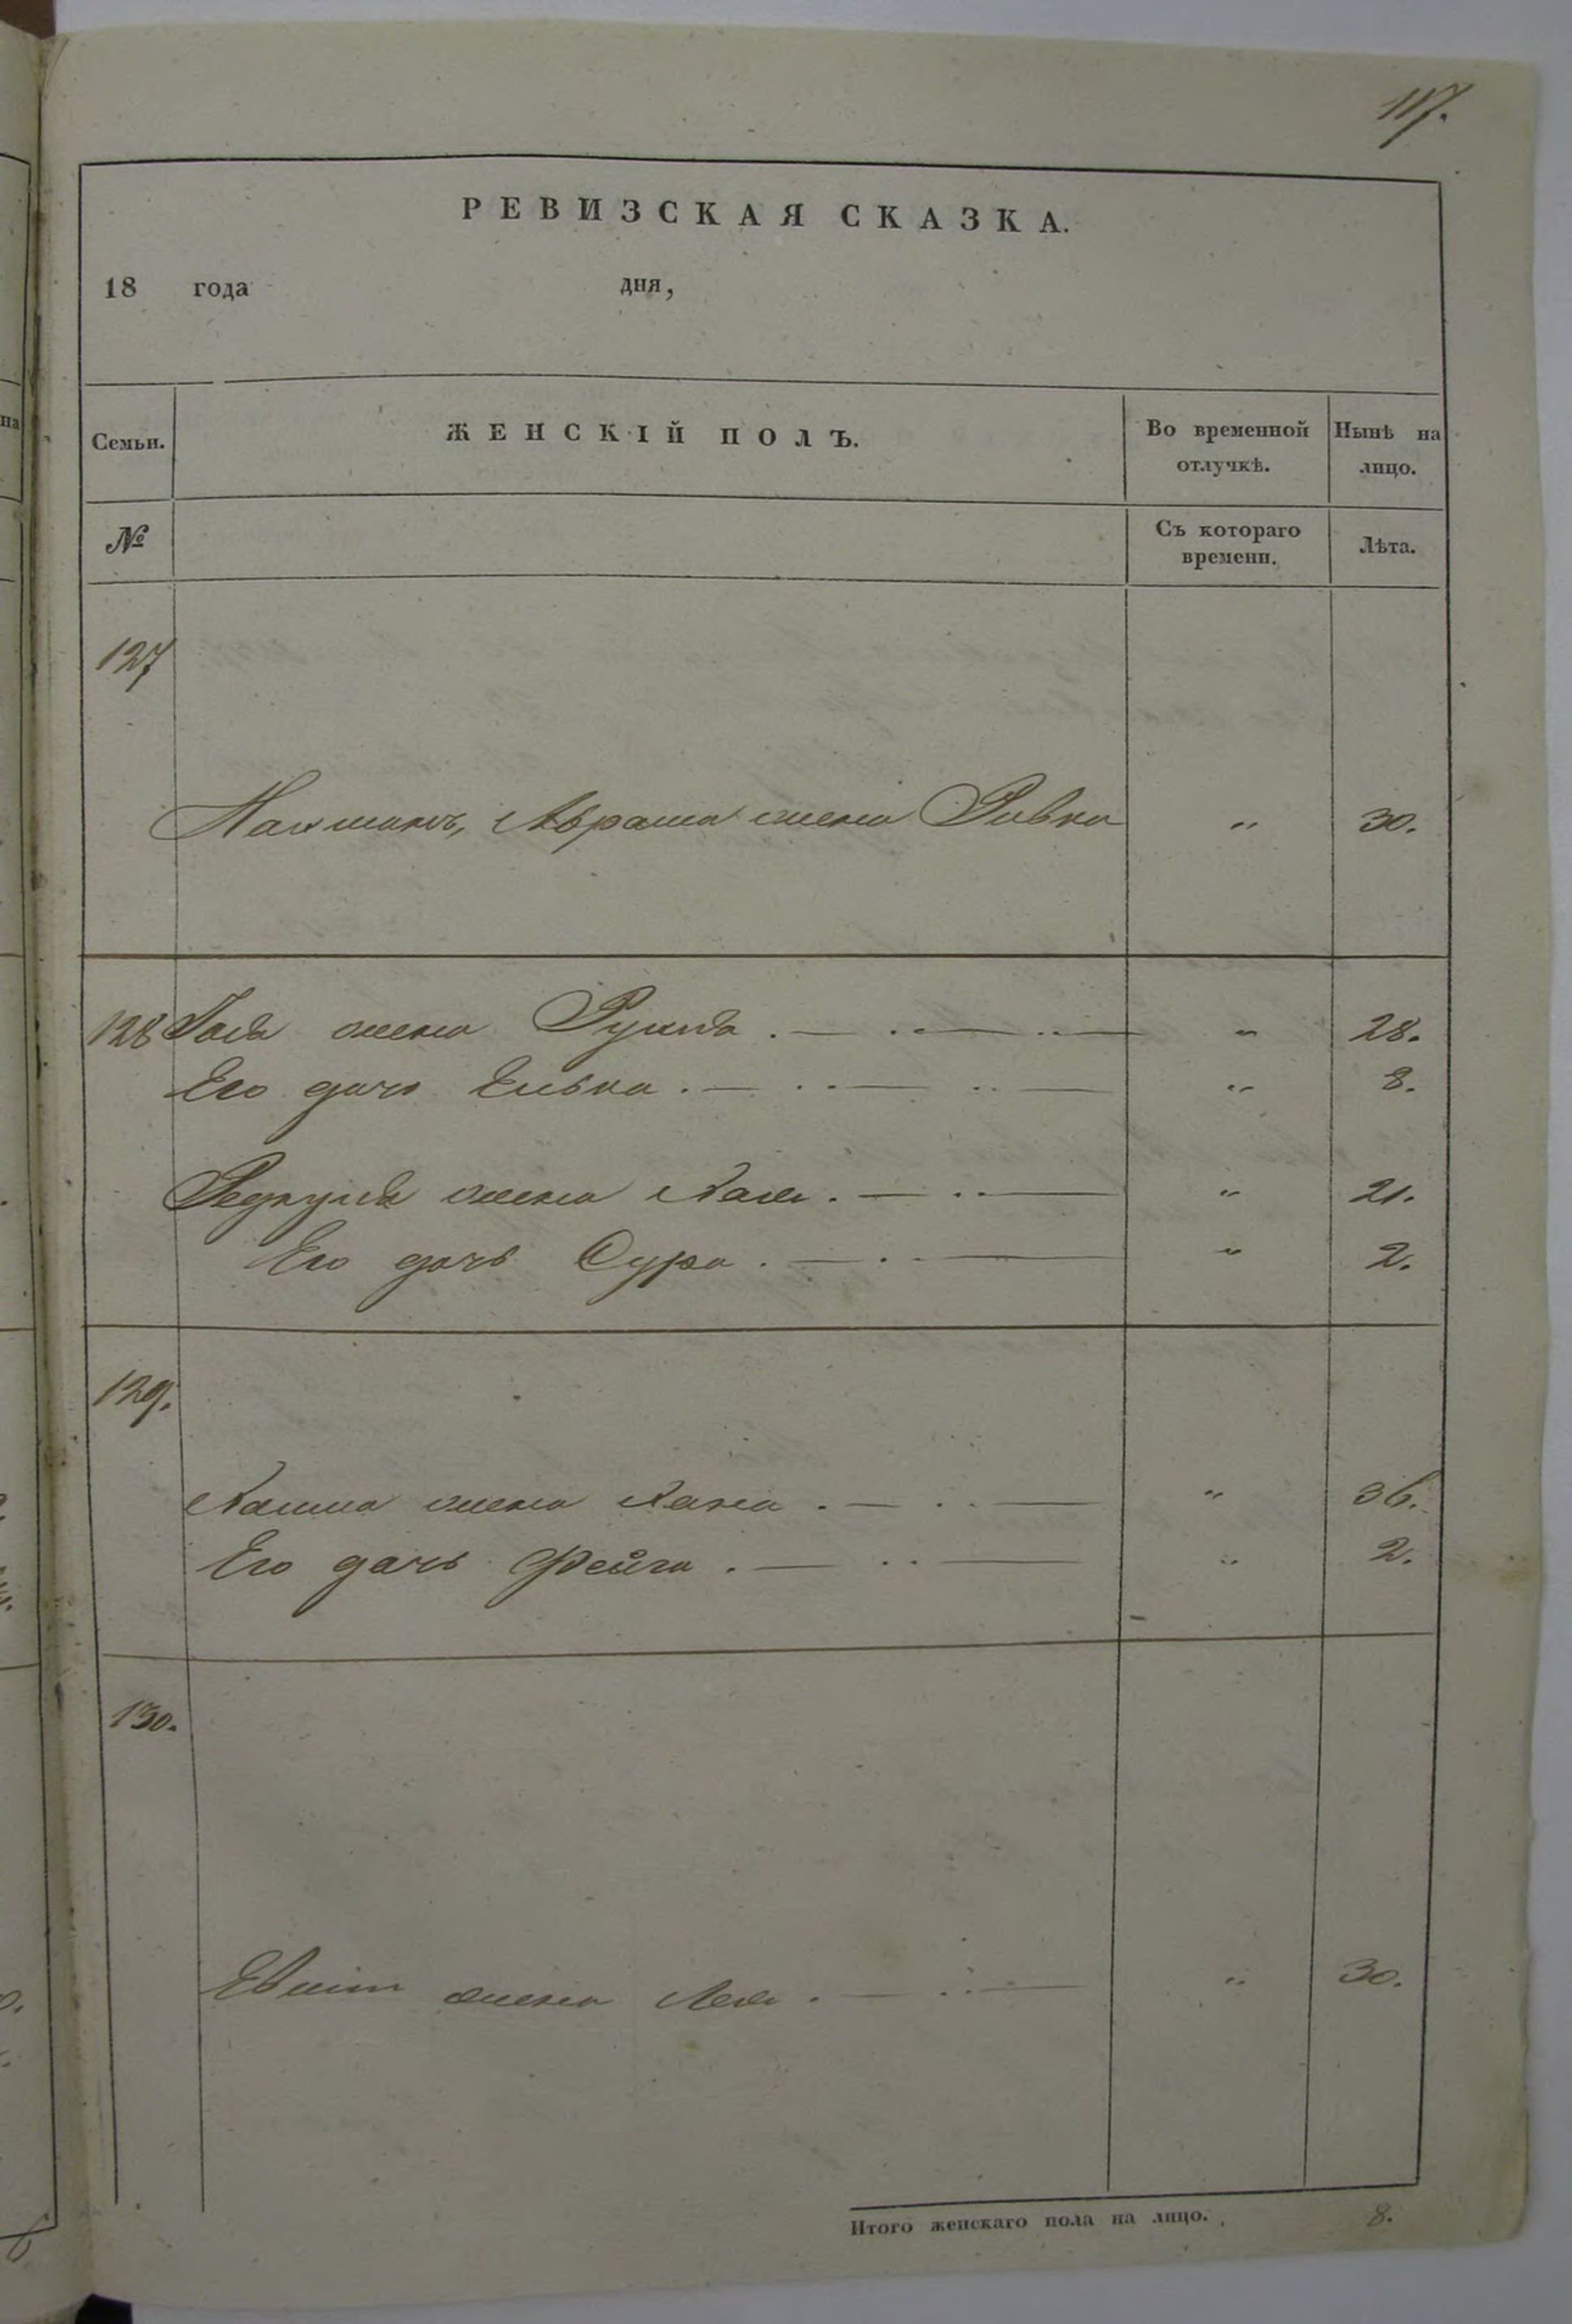 117.
РЕВИЗСКАЯ СКАЗКА.
18 года дня,
Семьи. ЖЕНСКІЙ ПОЛЪ. Во временной отлучкѣ. Нынѣ на лицо.
№ Съ котораго времени. Лѣта.
127
Аврама жена Ривка " 30.
128 жена " 28.
Его дочь " 8.
жена Хая . — .. — " 21.
Его дочь Сура . — . . — " 2.
129.
жена Хана . — . . — " 36.
Его дочь Фейга . — . . — " 2.
130.
жена Лея . — . . — " 30.
Итого женскаго пола на лицо. 8.